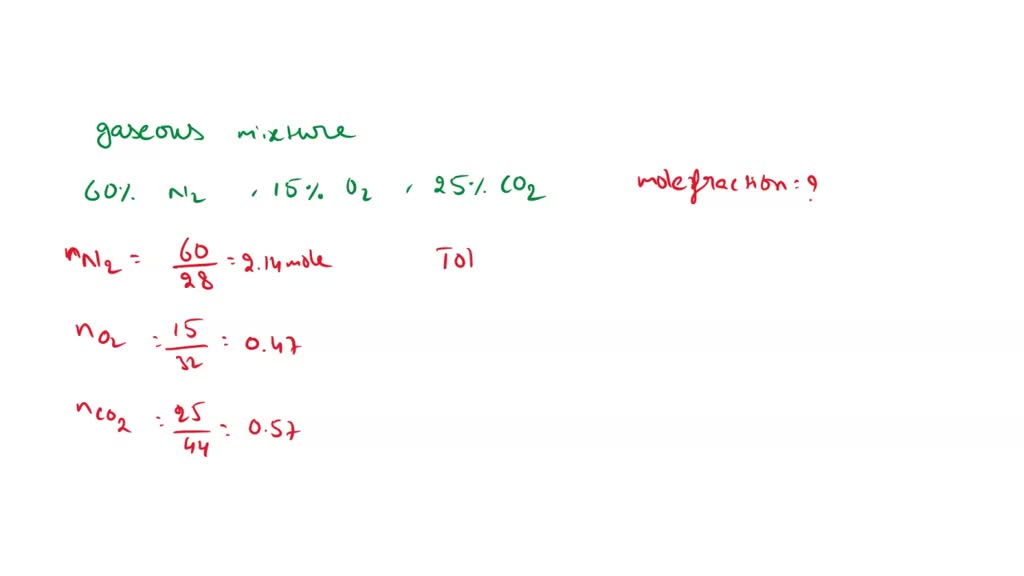 gaseous mixture
60% N2 , 15% O2 , 25% CO2 mole fraction = ?
nN2 = 60/28 = 2.14 mole Tot
nO2 = 15/32 = 0.47
nCO2 = 25/44 = 0.57